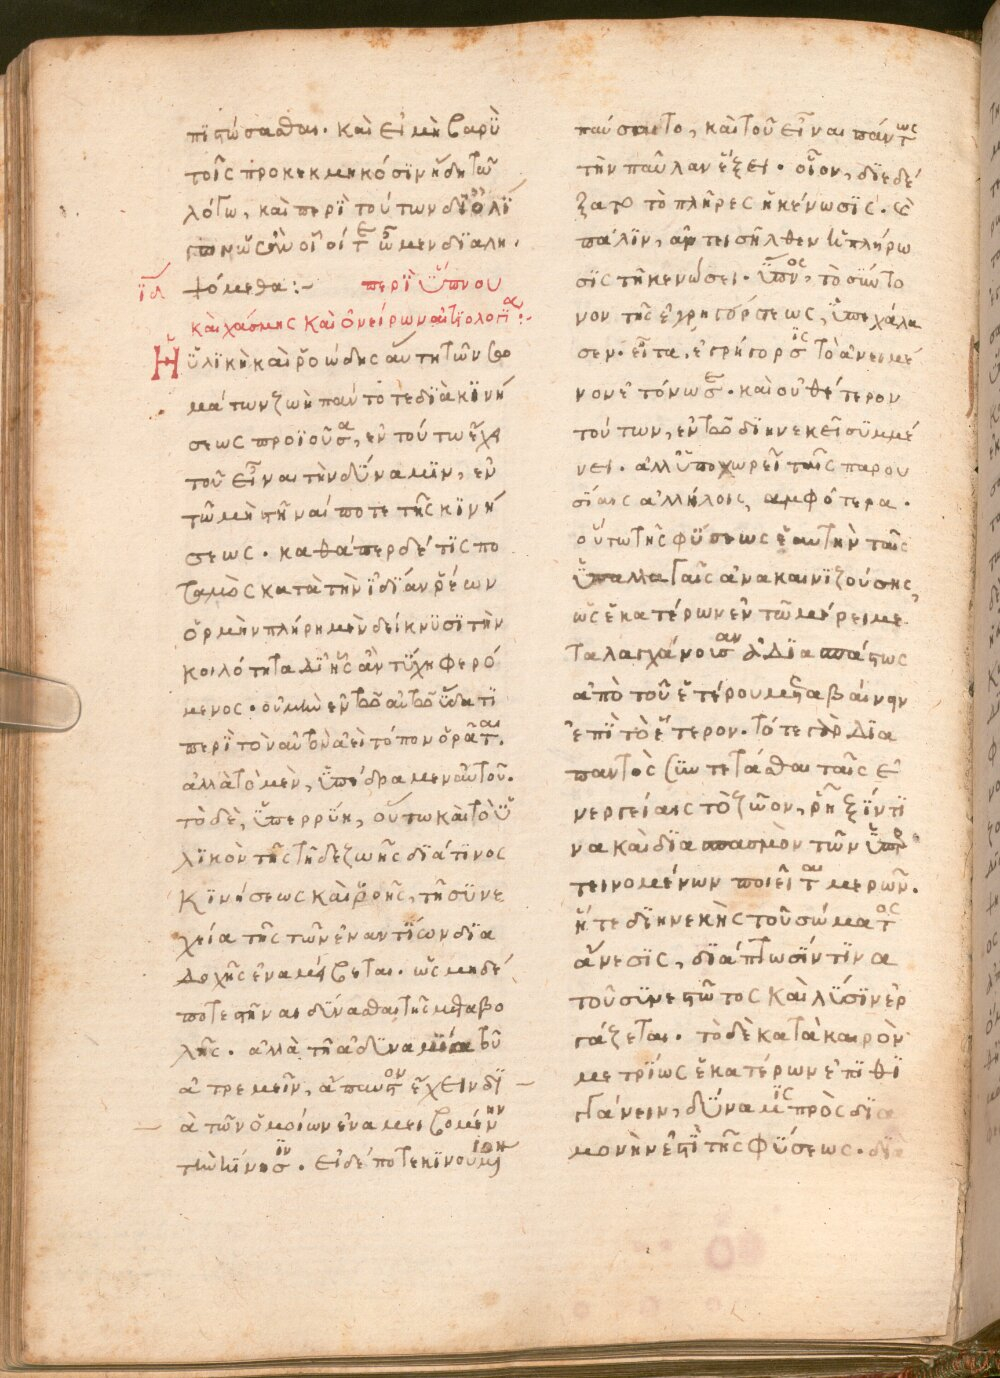 πϊστώσασθαι. καὶ εἰ μὴ βαρὺ
τοῖς προκεκμηκόσϊν ἤδη τῶ
λόγω, καὶ περὶ τούτων δϊ ὀλΐ
γων ὡς ἂν οἷοί τε ὦμεν δϊαλη
ψόμεθα :- περὶ ὕπνου
ιγ καὶ χάσμης καὶ ὀνείρων αἰτϊολογία :-
Ἡ ὑλϊκὴ καὶ ῥοώδης αὕτη τῶν σω
μάτων ζωὴ πάντοτε δϊὰ κϊνή
σεως προϊοῦσα, ἐν τούτω ἔχει
τοῦ εἶναι τὴν δύναμϊν, ἐν
τῶ μὴ στῆναί ποτε τῆς κϊνή
σεως. καθάπερ δέ τϊς πο
ταμὸς κατὰ τὴν ἰδϊαν ῥέων
ὁρμὴν πλήρη μὲν δείκνϋσϊ τὴν
κοιλότητα δϊ ἧς ἂν τύχη φερό
μενος. οὐ μὴν ἐν τῶ αὐτῶ ὕδατϊ
περὶ τὸν αὐτὸν ἀεὶ τόπον ὁρᾶται.
ἀλλὰ τὸ μὲν, ὑπέδραμεν αὐτοῦ.
τὸ δὲ, ὑπερρύη, οὕτω καὶ τὸ ὑ
λϊκὸν τῆς τῆδε ζωῆς δϊά τϊνος
κϊνήσεως καὶ ῥοῆς, τῆ σϋνε
χεία τῆς τῶν ἐναντίων δϊα
δοχῆς ἐναμείβεται. ὡς μηδέ
ποτε στῆναι δύνασθαι τῆς μεταβο
λῆς. ἀλλὰ τῆ ἀδϋναμΐα τοῦ
ἀτρεμεῖν, ἄπαυστον ἔχειν δϊ
ὰ τῶν ὁμοίων ἐναμειβομένην
τὴν κίνησϊν. εἰ δέ ποτε κϊνούμενον
παύσαιτο, καὶ τοῦ εἶναι πάντως
τὴν παῦλαν ἕξει. οἷον, δϊεδέ
ξατο τὸ πλῆρες ἡ κένωσϊς. καὶ
πάλϊν, ἀντεισῆλθεν ἡ πλήρω
σϊς τῆ κενώσει. ὕπνος, τὸ σύντο
νον τῆς ἐγρηγόρσεως, ὑπεχάλα
σεν. εἶτα, ἐγρήγορσϊς τὸ ἀνειμέ
νον ἐτόνωσε. καὶ οὐθέτερον
τούτων, ἐν τῶ δϊηνεκεῖ σϋμμέ
νει. ἀλλ' ὑποχωρεῖ ταῖς παρου
σΐαις ἀλλήλοις, ἀμφότερα.
οὕτω τῆς φύσεως ἑαυτὴν ταῖς
ὑπαλλαγαῖς ἀνακαινϊζούσης,
ὡς ἑκατέρων ἐν τῶ μέρει με
ταλαγχάνουσαν ἀδϊασπάστως
ἀπὸ τοῦ ἑτέρου μεταβαίνειν
ἐπὶ τὸ ἕτερον. τό τε γὰρ δϊα
παντὸς συντετάσθαι ταῖς ἐ
νεργείαις τὸ ζῶον, ῥῆξΐν τϊ
να καὶ δϊασπασμὸν τῶν ὑπερ
τεινομένων ποιεῖται μερῶν.
ἥ τε δϊηνεκὴς τοῦ σώματος
ἄνεσϊς, δϊάπτωσΐν τϊνα
τοῦ σϋνεστῶτος καὶ λύσϊν ἐρ
γάζεται. τὸ δὲ κατὰ καιρὸν
μετρΐως ἑκατέρων ἐπϊθϊ
γγάνειν, δύναμϊς πρὸς δϊα
μονήν ἐστϊ τῆς φύσεως. δϊὰ